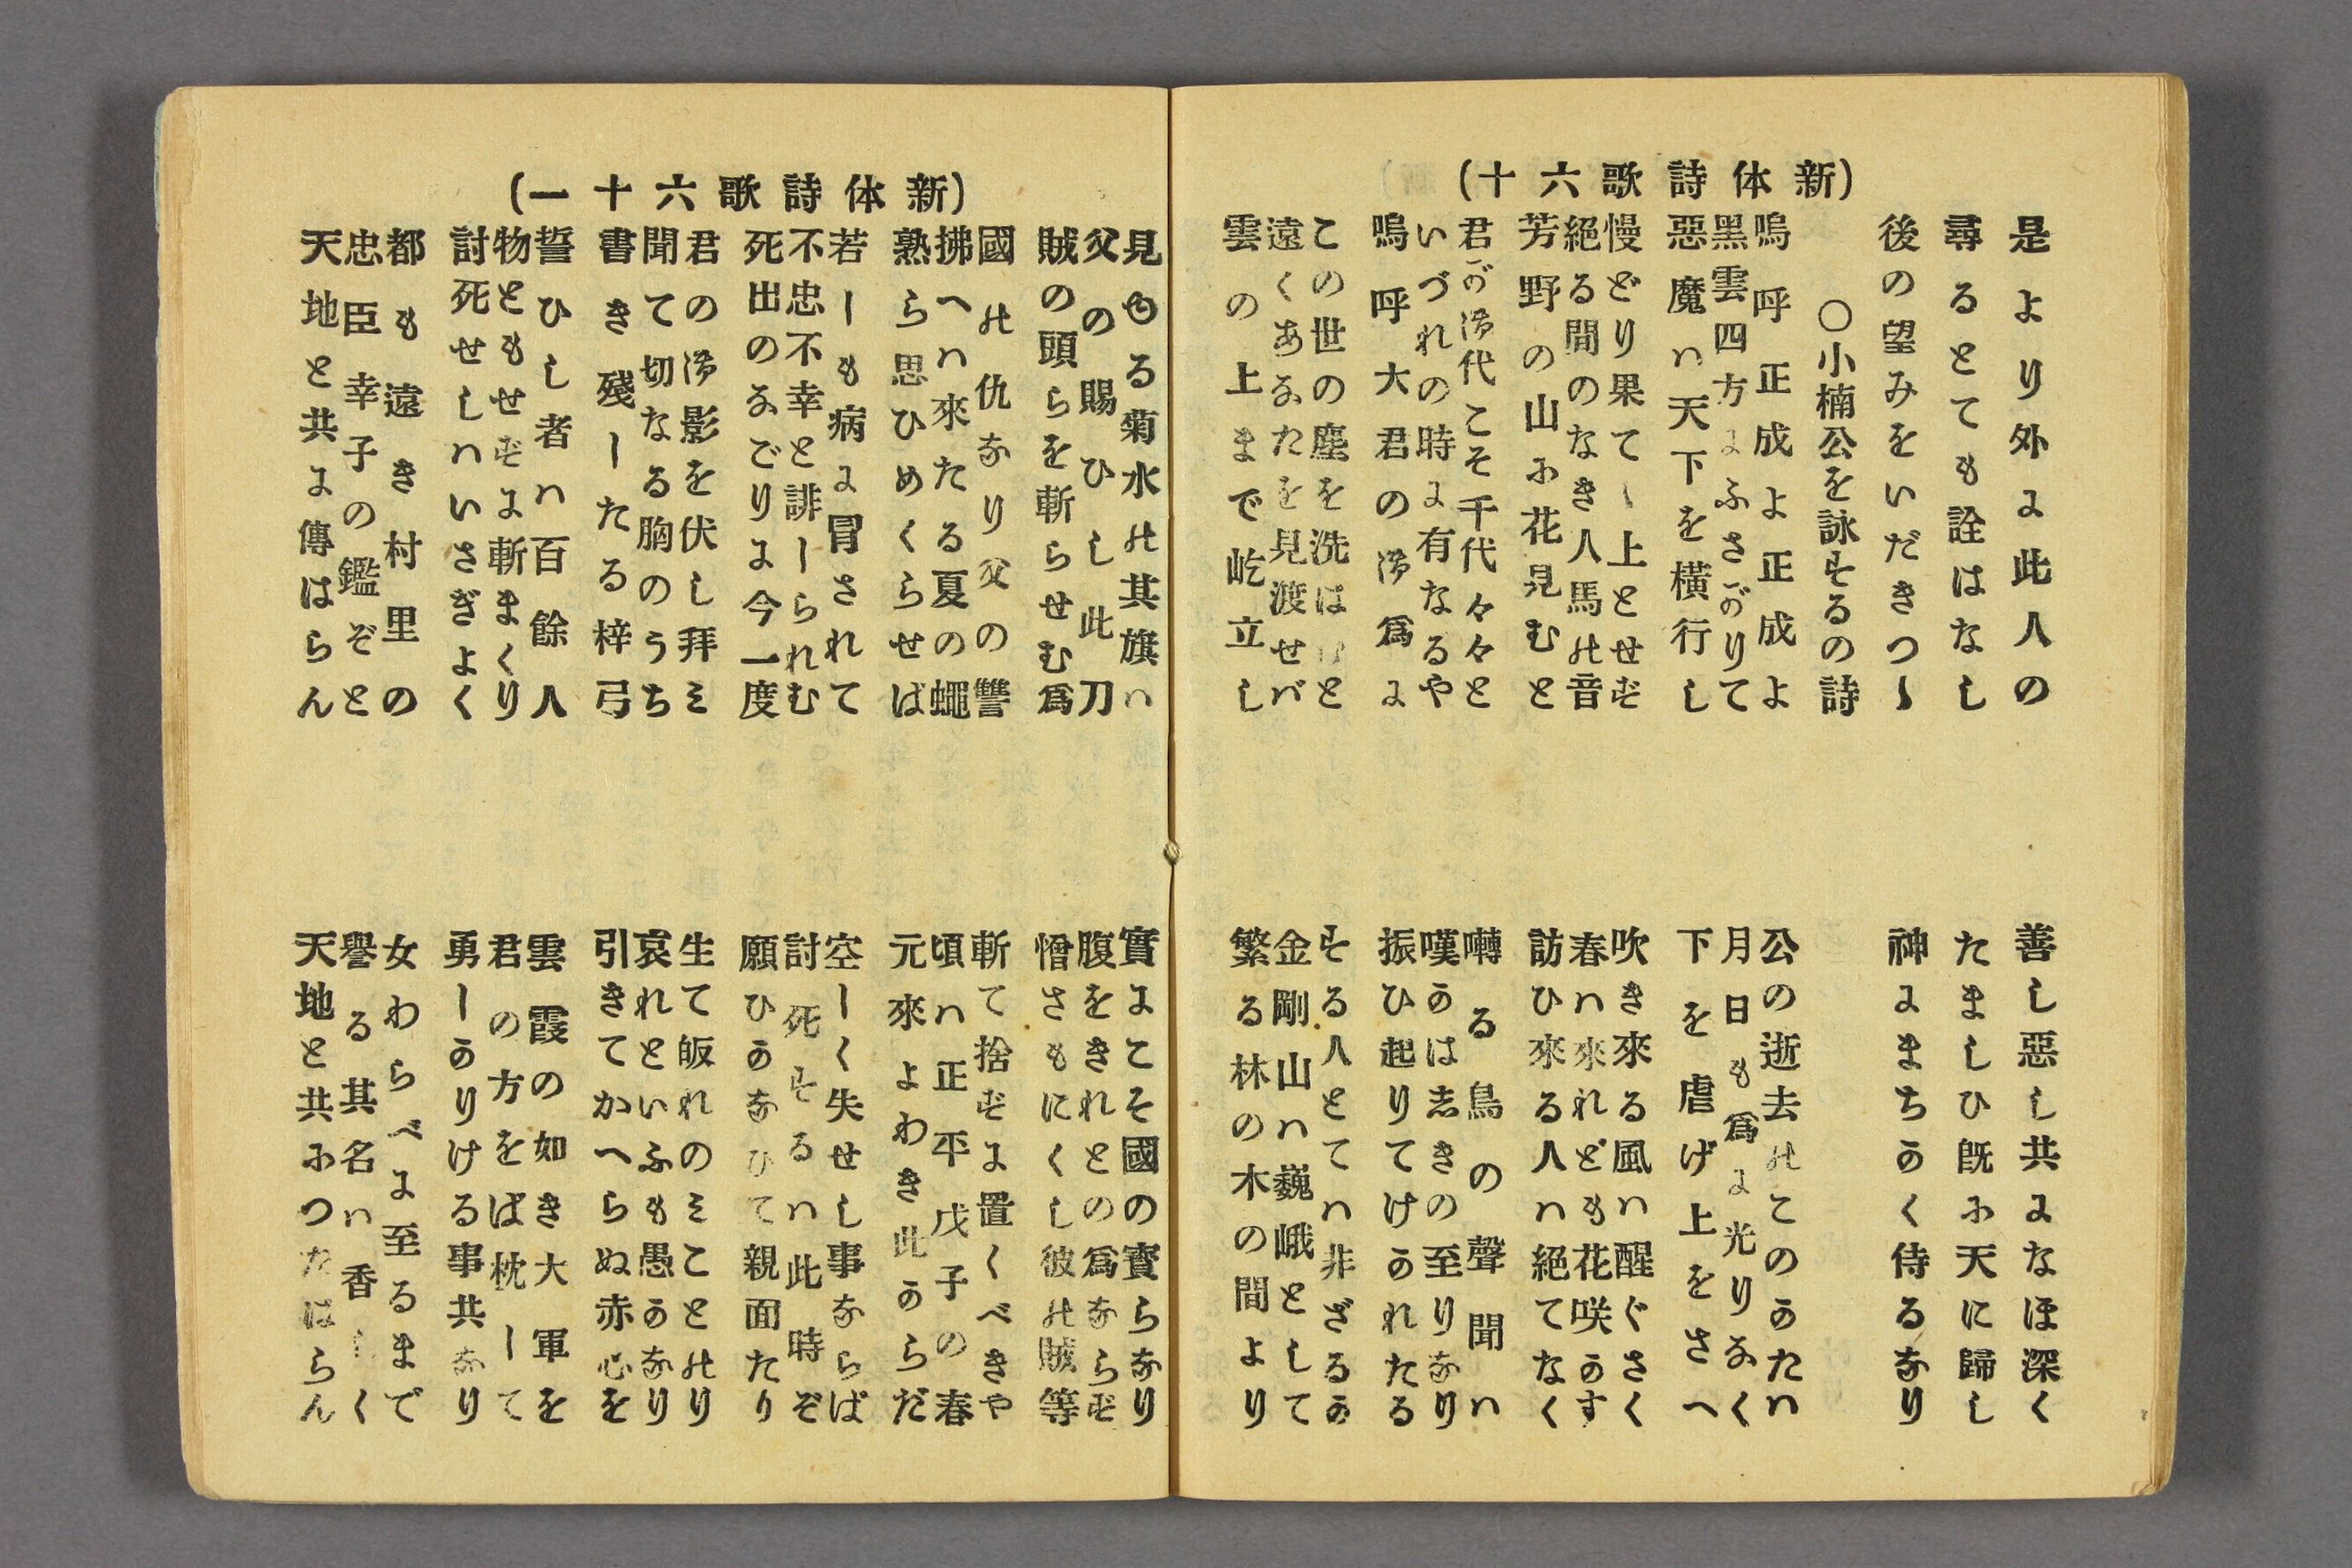 (新体詩歌六十)
是より外に此人の
善し惡し共になほ深く
尋るとても詮はなし
たましひ既に天に歸し
後の望みをいだきつゝ
神にまちかく侍るなり
○小楠公を詠ずるの詩
嗚呼正成よ正成よ
公の逝去のこのかたハ
黑雲四方にふさがりて
月日も爲に光りなく
惡魔ハ天下を橫行し
下を虐げ上をさへ
慢どり果てゝ上とせず
吹き來る風ハ醒ぐさく
絕る間のなき人馬の音
春ハ來れども花咲かす
芳野の山に花見むと
訪ひ來る人ハ絕てなく
君が御代こそ千代々々と
囀る鳥の聲聞ハ
いづれの時に有なるや
嘆かは志きの至りなり
嗚呼大君の御爲に
振ひ起りてけかれたる
この世の塵を洗はんと
する人とてハ非ざるか
遠くあなたを見渡せバ
金剛山ハ巍峨として
雲の上まで屹立し
繁る林の木の間より
(新体詩歌六十一)
見ゆる菊水の其旗ハ
實にこそ國の寶らなり
父の賜ひし此刀
腹をきれとの爲ならず
賊の頭らを斬らせむ爲
憎さもにくし彼の賊等
國の仇なり父の讐
斬て捨ずに置くべきや
拂へハ來たる夏の蠅
頃ハ正平戊子の春
熟ら思ひめくらせば
元來よわき此からだ
若しも病に冒されて
空しく失せし事ならば
不忠不幸と誹しられむ
討死するハ此時ぞ
死出のなごりに今一度
願ひかなひて親面たり
君の御影を伏し拜ミ
生て皈れのミことのり
聞て切なる胸のうち
哀れといふも愚かなり
書き殘したる梓弓
引きてかへらぬ赤心を
誓ひし者ハ百餘人
雲霞の如き大軍を
物ともせずに斬まくり
君の方をば枕して
討死せしハいさぎよく
勇しかりける事共なり
都も遠き村里の
女わらべに至るまで
忠臣幸子の鑑ぞと
譽る其名ハ香しく
天地と共に傳はらん
天地と共につたはらん